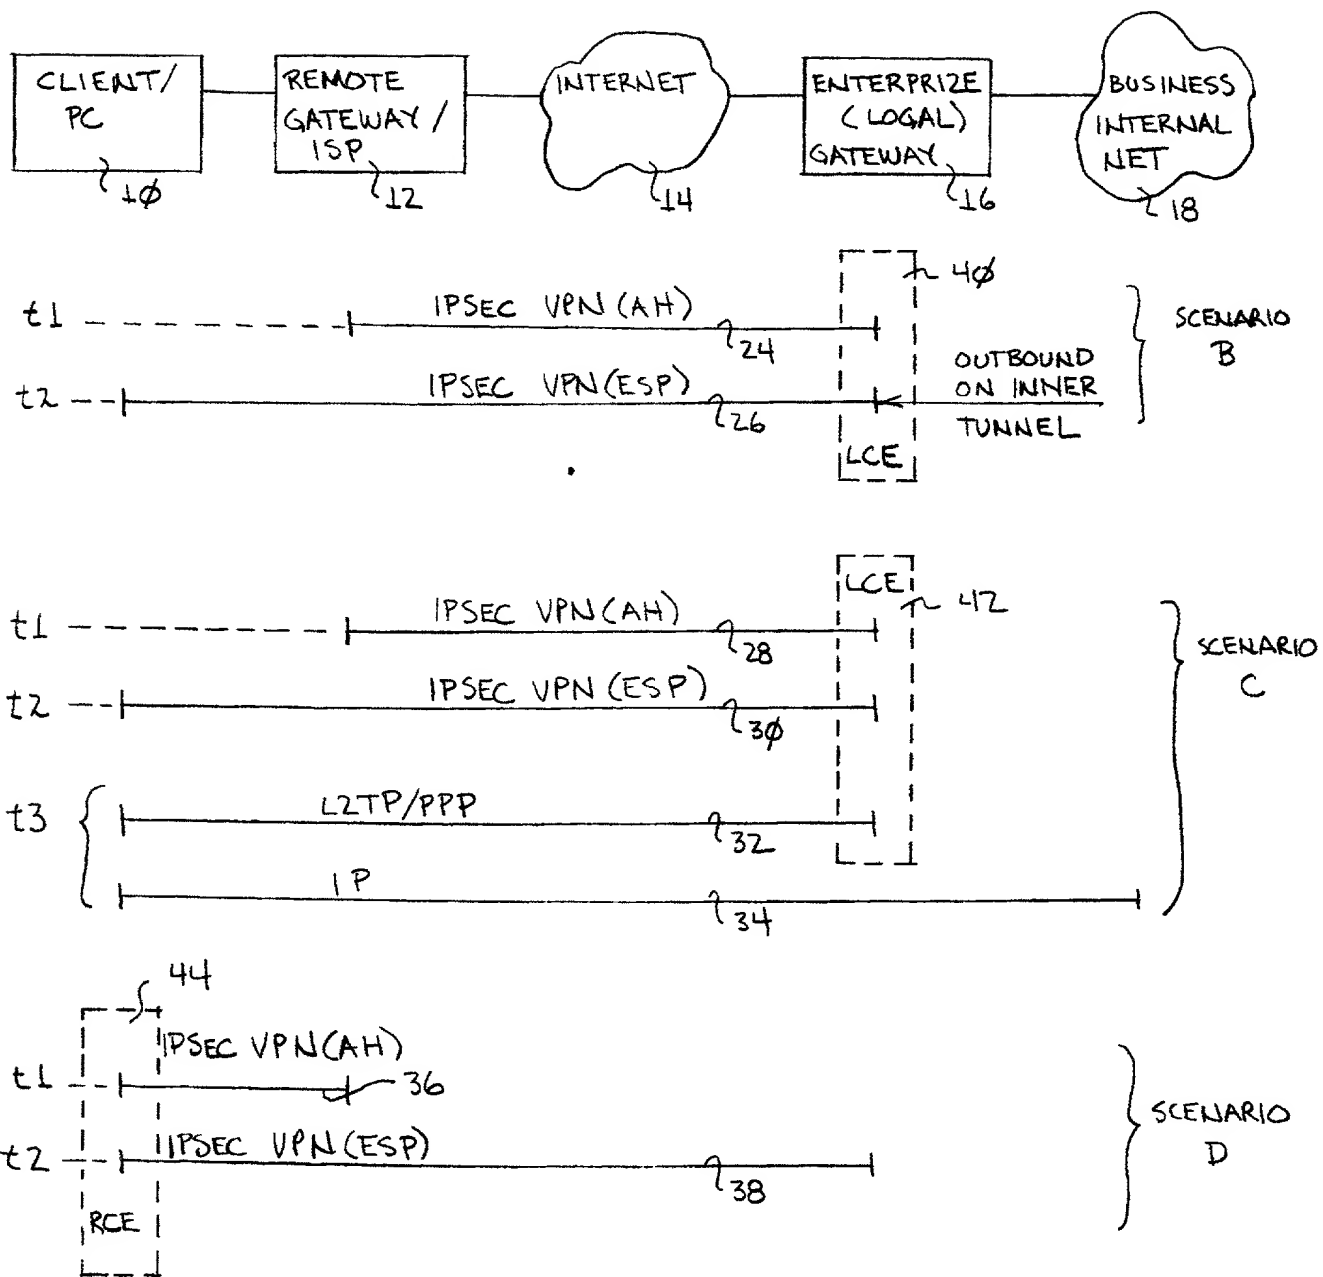 CLIENT/
PC
10
REMOTE
GATEWAY/
ISP
12
INTERNET
14
ENTERPRIZE
(LOGAL)
GATEWAY
16
BUSINESS
INTERNAL
NET
18
40
t1
IPSEC VPN(AH)
24
t2
IPSEC VPN(ESP)
26
OUTBOUND
ON INNER
TUNNEL
LCE
SCENARIO
B
LCE
42
t1
IPSEC VPN(AH)
28
t2
IPSEC VPN(ESP)
30
t3
L2TP/PPP
32
IP
34
SCENARIO
C
44
IPSEC VPN(AH)
t1
36
t2
IPSEC VPN(ESP)
38
RCE
SCENARIO
D